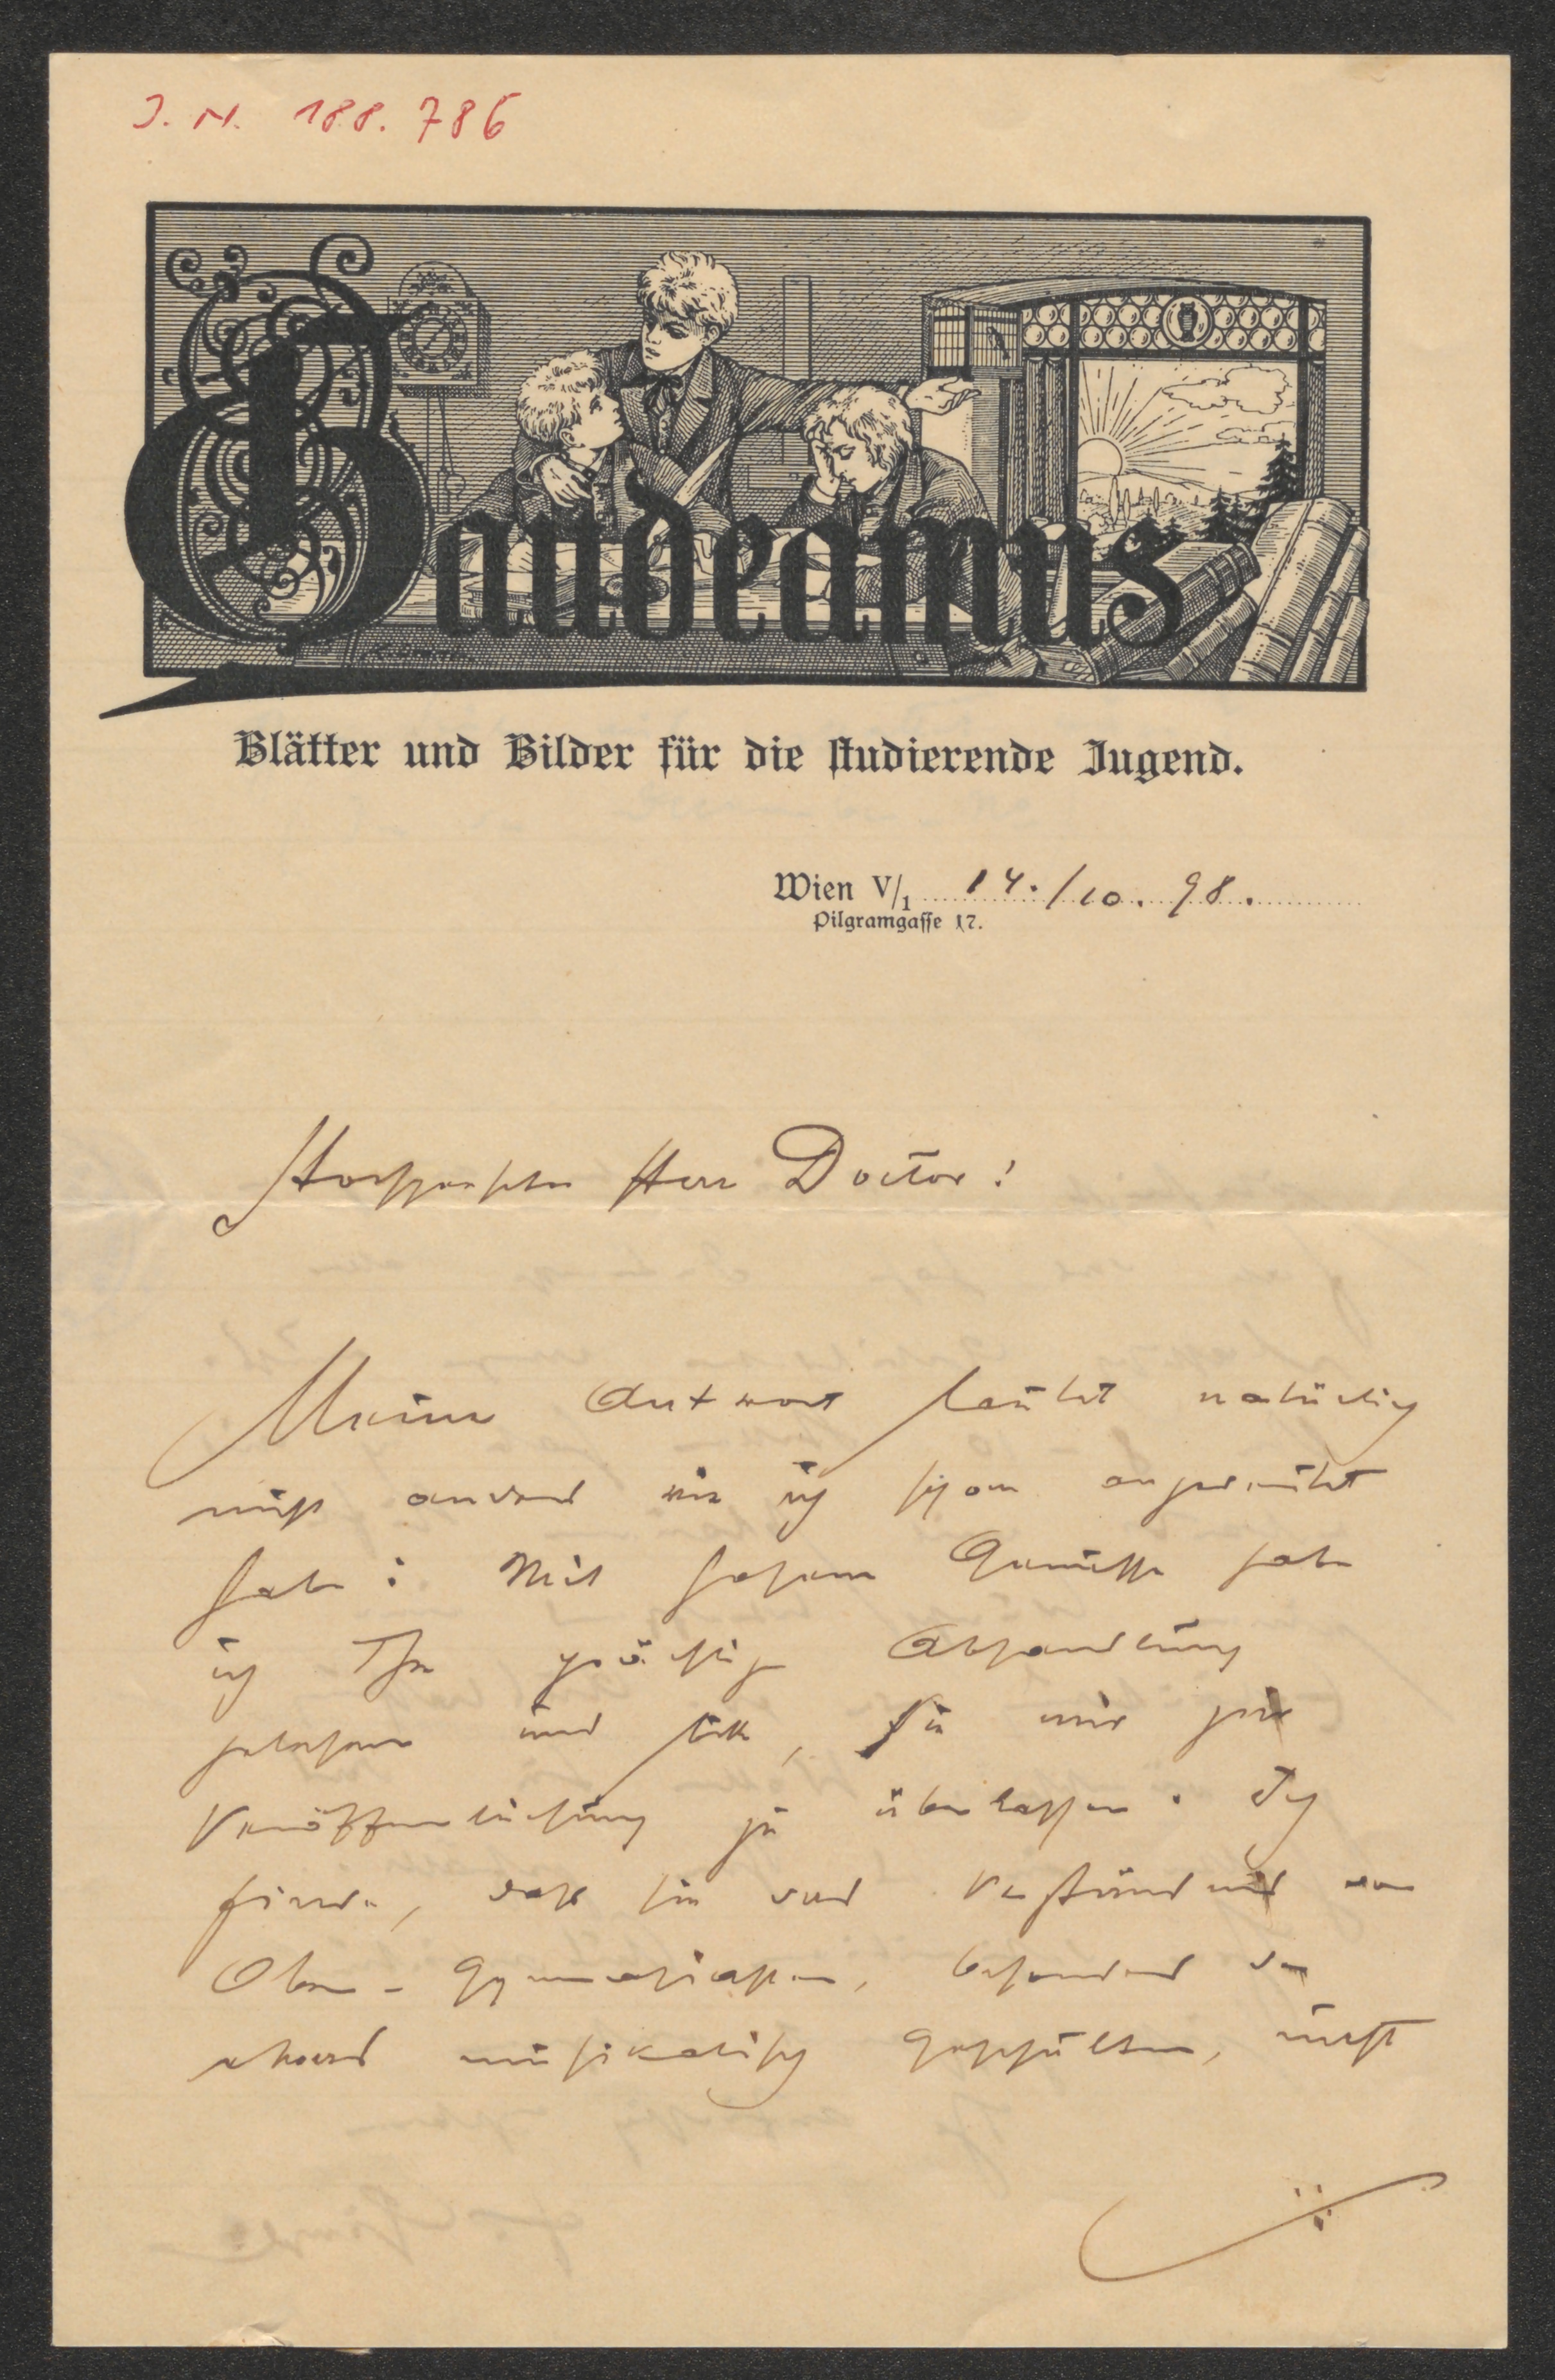 J. N. 188.786
Gaudeamus
Blätter und Bilder für die studierende Jugend.
Wien V/1 14./10. 98.
Pilgramgasse 17.
Hochgeehrter Herr Doctor!
Meine Antwort lautet natürlich
nicht anders wie ich schon angedeutet
habe: Mit hohem Genusse habe
ich Ihre prächtige Abhandlung
gelesen und bitte, sie mir zur
Veröffentlichung zu überlassen. Ich
finde, dass sie das Verständnis von
Ober-Gymnasiasten, besonders von
etwas musikalisch Geschulten, nicht